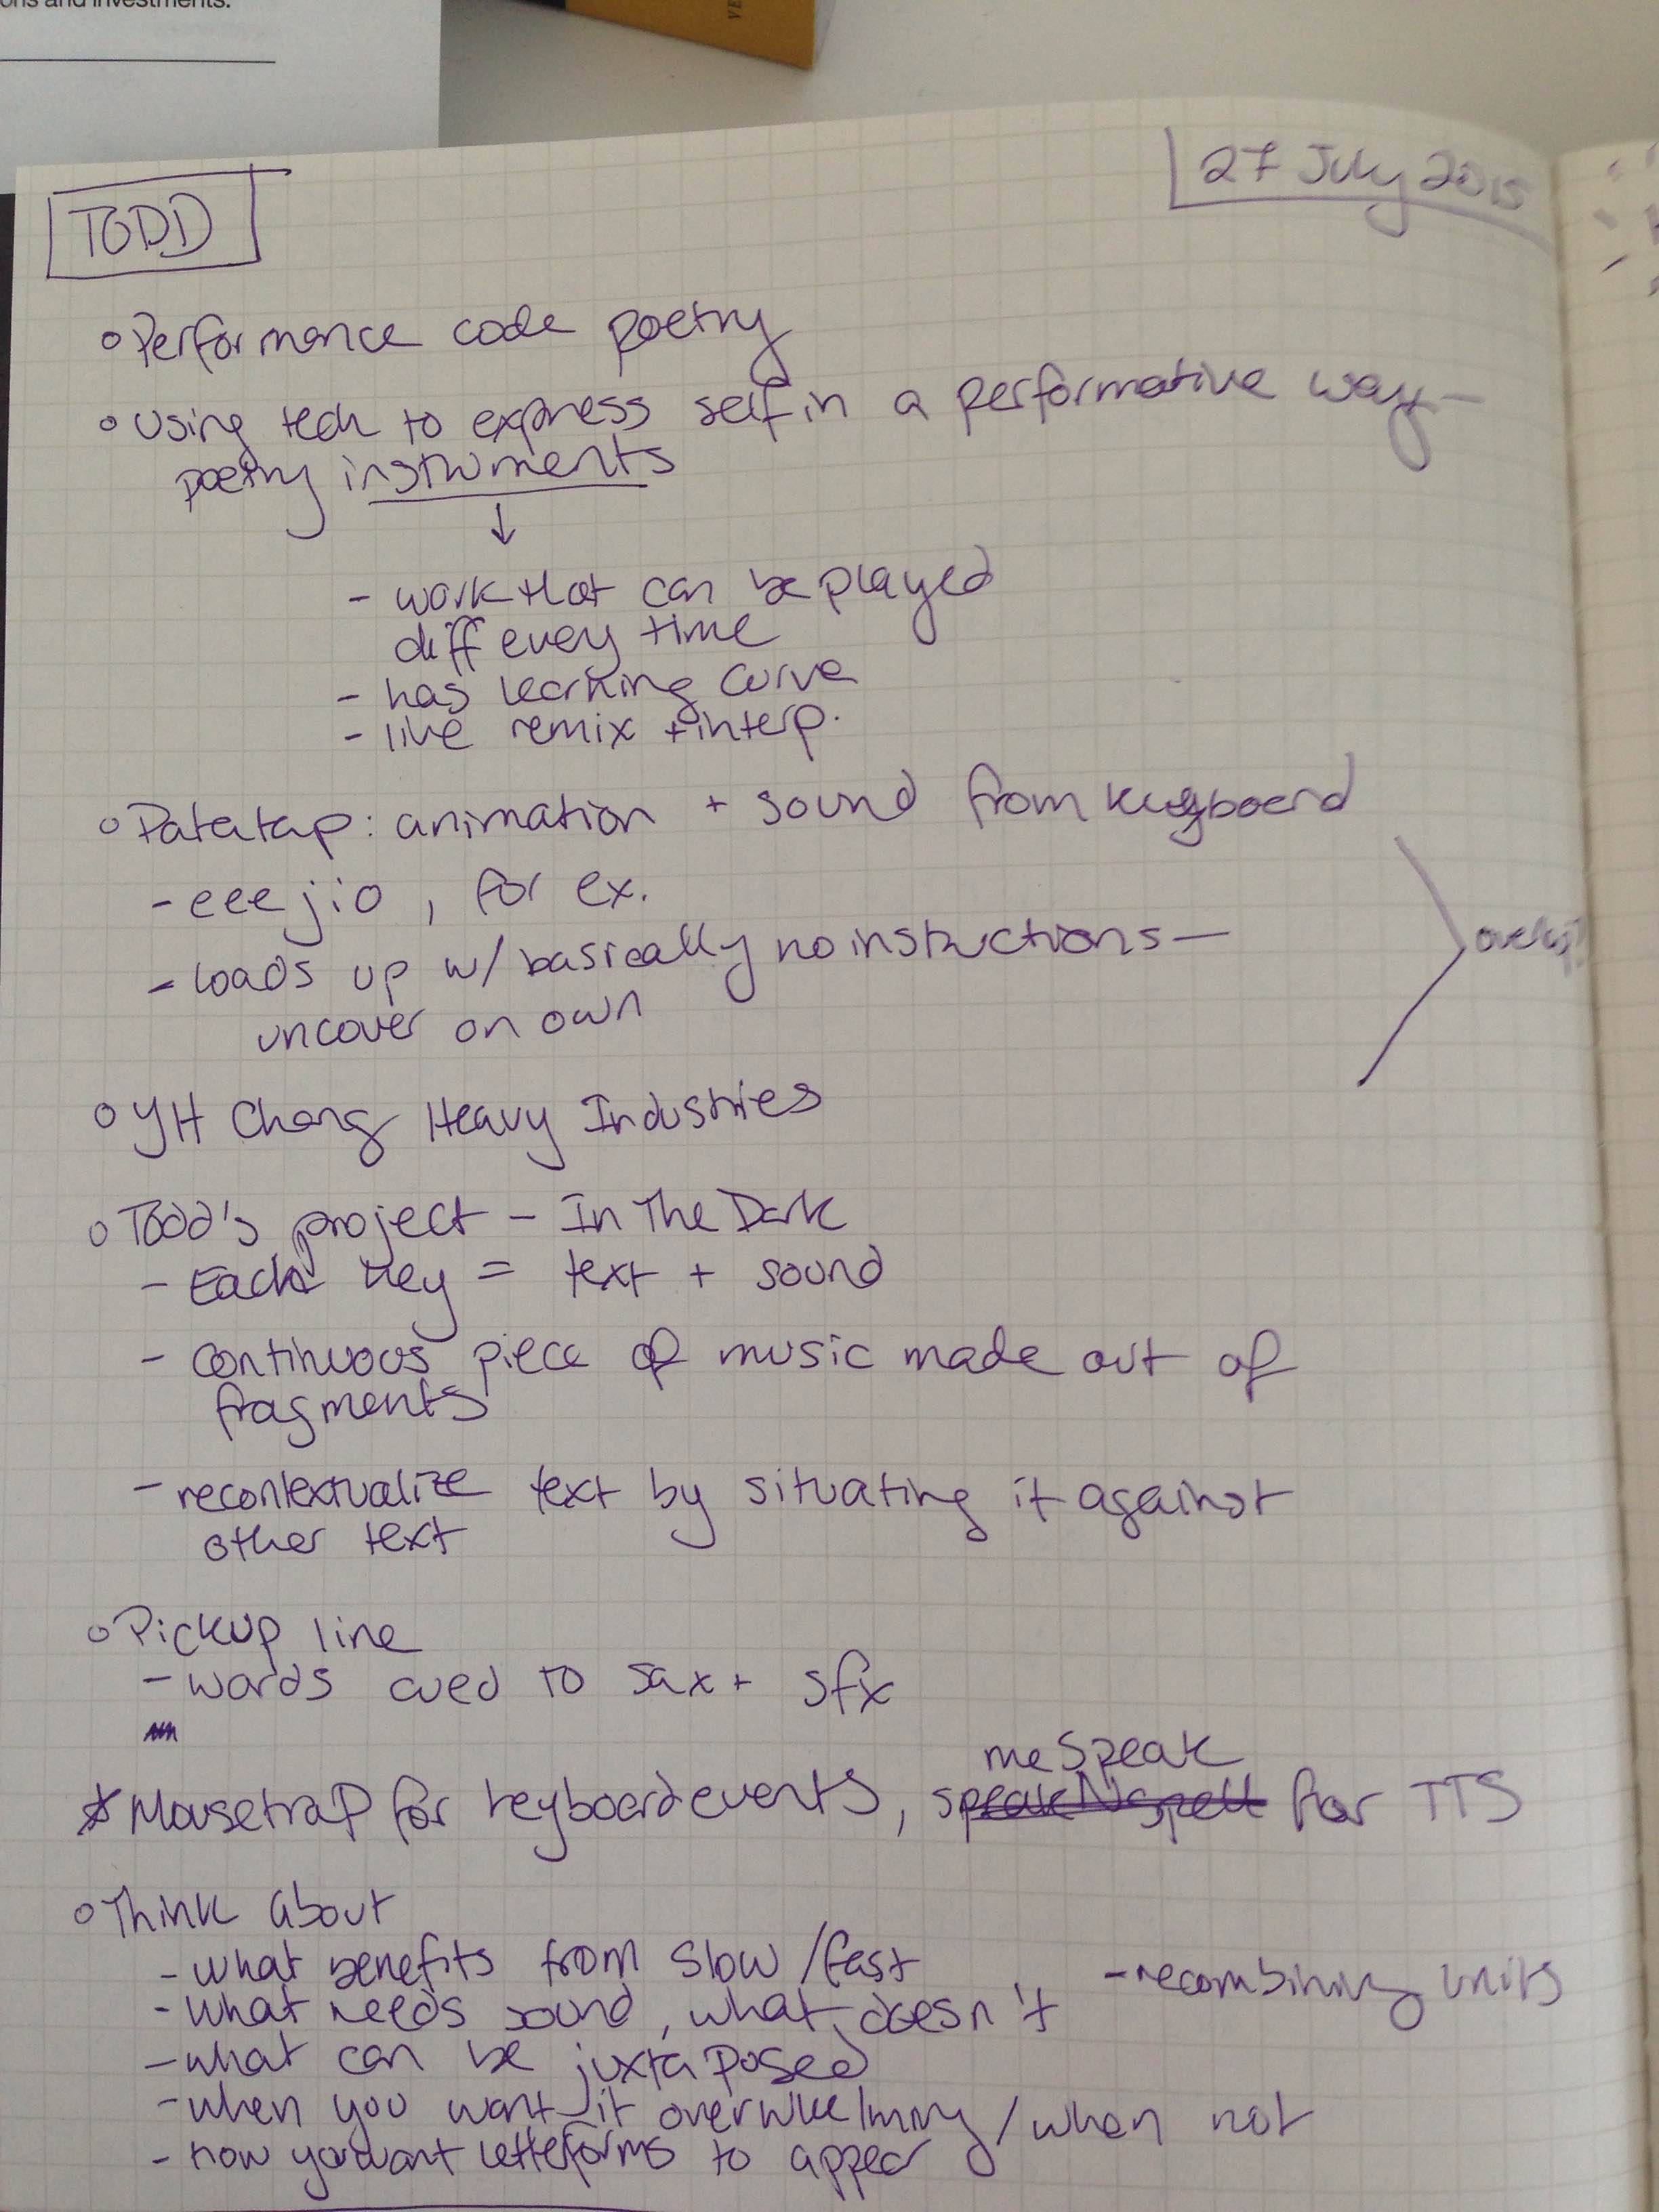 ons and investments.
VE
27 July 2015
TODD
○ Performance code poetry
○ Using tech to express self in a performative way —
poetry instruments
↓
- work that can be played
diff every time
- has learning curve
- like remix + interp.
○ Patatap: animation + sound from keyboard
- eeejio, for ex.
- loads up w/ basically no instructions —
uncover on own
○ YH Chang Heavy Industries
○ Todd's project - In The Dark
- Each key = text + sound
- continuous piece of music made out of
fragments
- recontextualize text by situating it against
other text
○ Pickup line
- words cued to sax + sfx
meSpeak
* Mousetrap for keyboard events, speakNspell for TTS
○ Think about
- what benefits from slow/fast
- recombining units
- what needs sound, what doesn't
- what can be juxtaposed
- when you want it overwhelming/when not
- how you want letterforms to appear